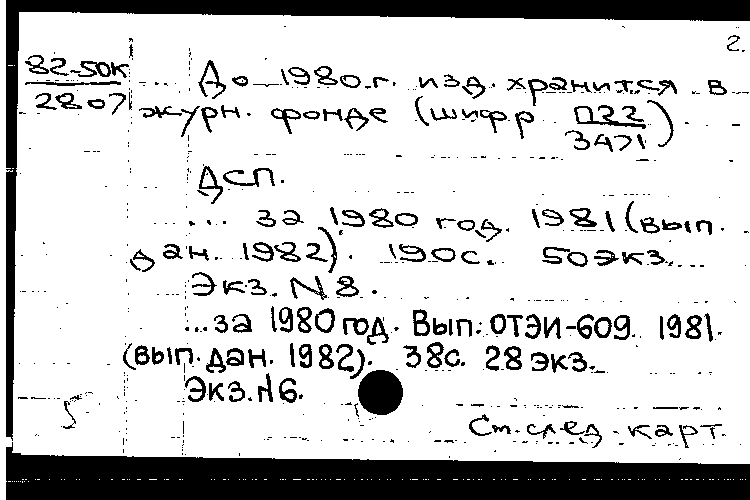 2.
82-50К
2807
До 1980.г. изд. хранится в
журн. фонде (шифр П22/3471)
ДСП.
... за 1980 год. 1981 (вып.
дан. 1982). 190с. 50экз.
Экз. N 8.
...за 1980 год. Вып. ОТЭИ-609. 1981.
(вып. дан. 1982). 38с. 28 экз.
Экз. N 6.
5
Ст. след. карт.